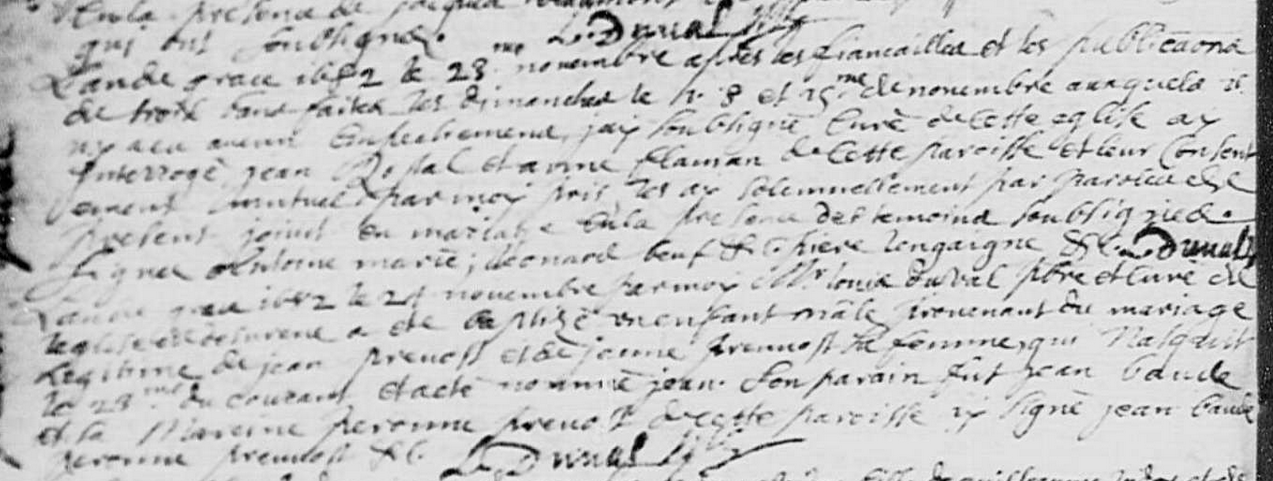 en la presence de jacques
qui ont soubsigné. L. Duval
L'an de grace 1682 le 23.me novembre apres les fiancailles et les publications
de trois bans faites les dimanches le 1. 8 et 15.me de novembre auxquels il
ny a eu aucun empeschement, jay soubsigné curé de cette eglise ay
interrogé jean Rossal et anne flaman de cette paroisse et leur consent
ement mutuel par moy pris les ay solemnellement par paroles de
present joints en mariage en la presence des temoins soubsignés.
signés Antoine marie, Leonard beuf &c. piere longaigne &c. L. Duval
L'an de grace 1682 le 24 novembre par moy M.r louis du val pbre et curé de
leglise de a eté baptizé un enfant mâle provenant du mariage
legitime de jean prevost et de jeanne prevost sa femme, qui nasquit
le 23.me du courant et a eté nommé jean. Son parain fut jean baude
et la Mareine peronne prevost de cette paroisse ay signé jean baude
peronne prevost &c. L. Duval